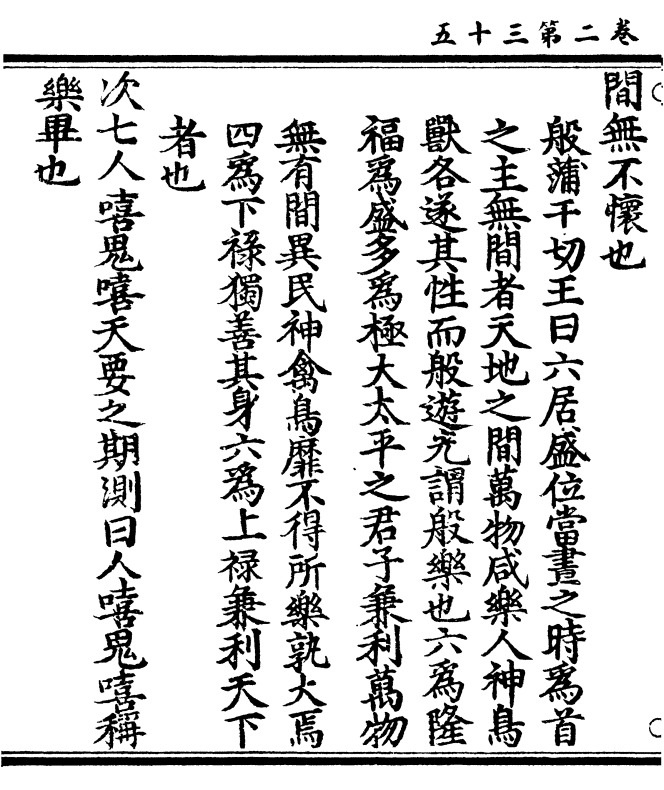 卷二第三十五
間無不懷也
般蒲干切王曰六居盛位當晝之時爲首
之主無間者天地之間萬物咸樂人神鳥
獸各遂其性而般遊充謂般樂也六爲隆
福爲盛多爲極大太平之君子兼利萬物
無有間異民神禽鳥靡不得所樂孰大焉
四爲下祿獨善其身六爲上祿兼利天下
者也
次七人嘻鬼嘻天要之期測曰人嘻鬼嘻稱
樂畢也